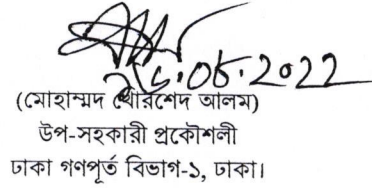 ২৮.০৮.2022
(মোহাম্মদ খোরশেদ আলম)
উপ-সহকারী প্রকৌশলী
ঢাকা গণপূর্ত বিভাগ-১, ঢাকা।